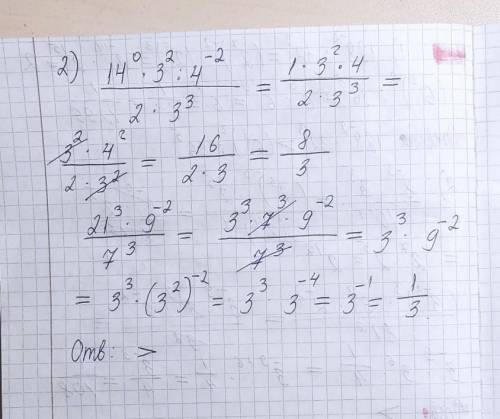 2) (14^0 · 3^2 · 4^-2) / (2 · 3^3) = (1 · 3^2 · 4) / (2 · 3^3) =
(3^2 · 4^2) / (2 · 3^2) = 16 / (2 · 3) = 8 / 3
(21^3 · 9^-2) / 7^3 = (3^3 · 7^3 · 9^-2) / 7^3 = 3^3 · 9^-2
= 3^3 · (3^2)^-2 = 3^3 · 3^-4 = 3^-1 = 1 / 3
Отв: >